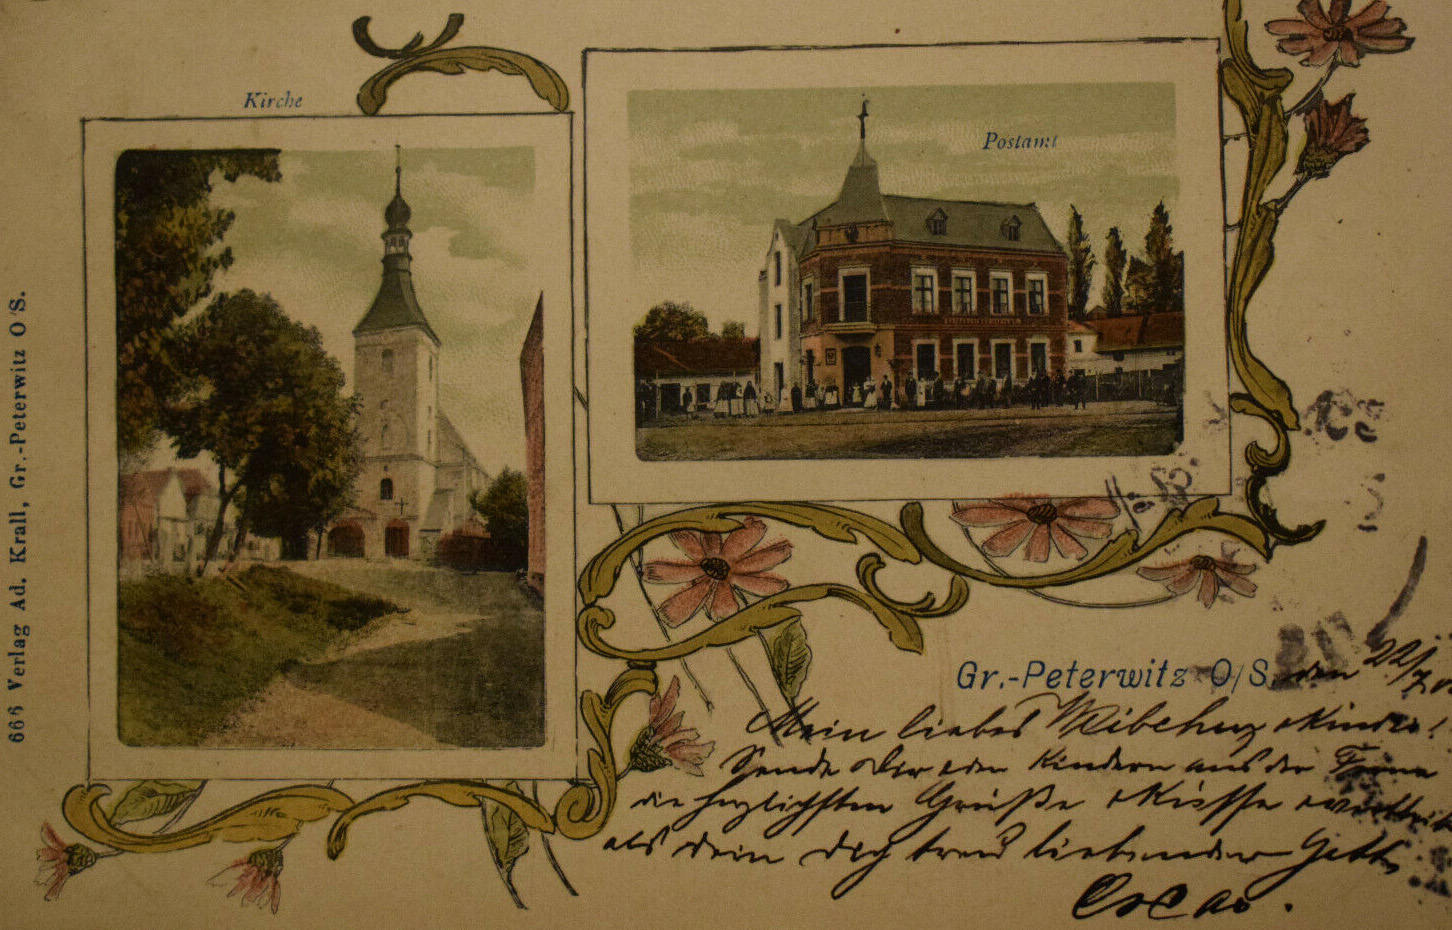 Kirche
Postamt
666 Verlag Ad. Krall, Gr.-Peterwitz O/S.
Gr.-Peterwitz O/S, den 22/7
Mein liebes Kinder!
Sende Dir den Kindern aus der Ferne
die herzlichsten Grüße Küsse
als dein dich treu liebender Gatte
Oscar.